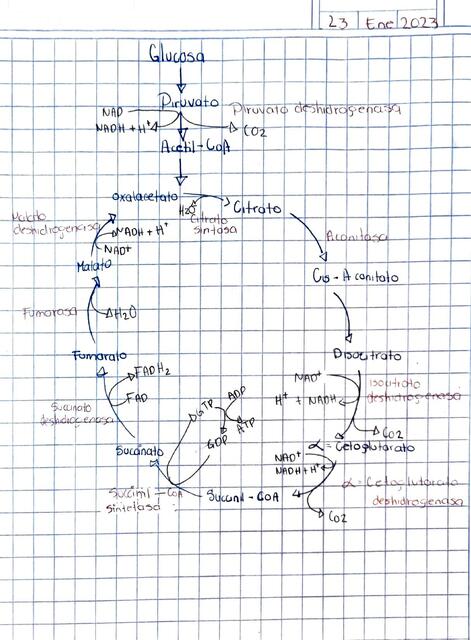 23 Ene 2023
Glucosa
Piruvato
NAD
Piruvato deshidrogenasa
NADH + H⁺
CO2
Acetil-CoA
Oxalacetato
H2O
Citrato
Citrato
sintasa
Malato
deshidrogenasa
NADH + H⁺
NAD⁺
Aconitasa
Malato
Cis-Aconitato
Fumarasa
H2O
Fumarato
FADH2
FAD
Isocitrato
NAD⁺
Isocitrato
deshidrogenasa
H⁺ + NADH
CO2
GTP
ADP
ATP
GDP
Succinato
deshidrogenasa
Succinato
α-Cetoglutarato
NAD⁺
NADH + H⁺
Succinil-CoA
sintetasa
Succinil-CoA
α-Cetoglutarato
deshidrogenasa
CO2